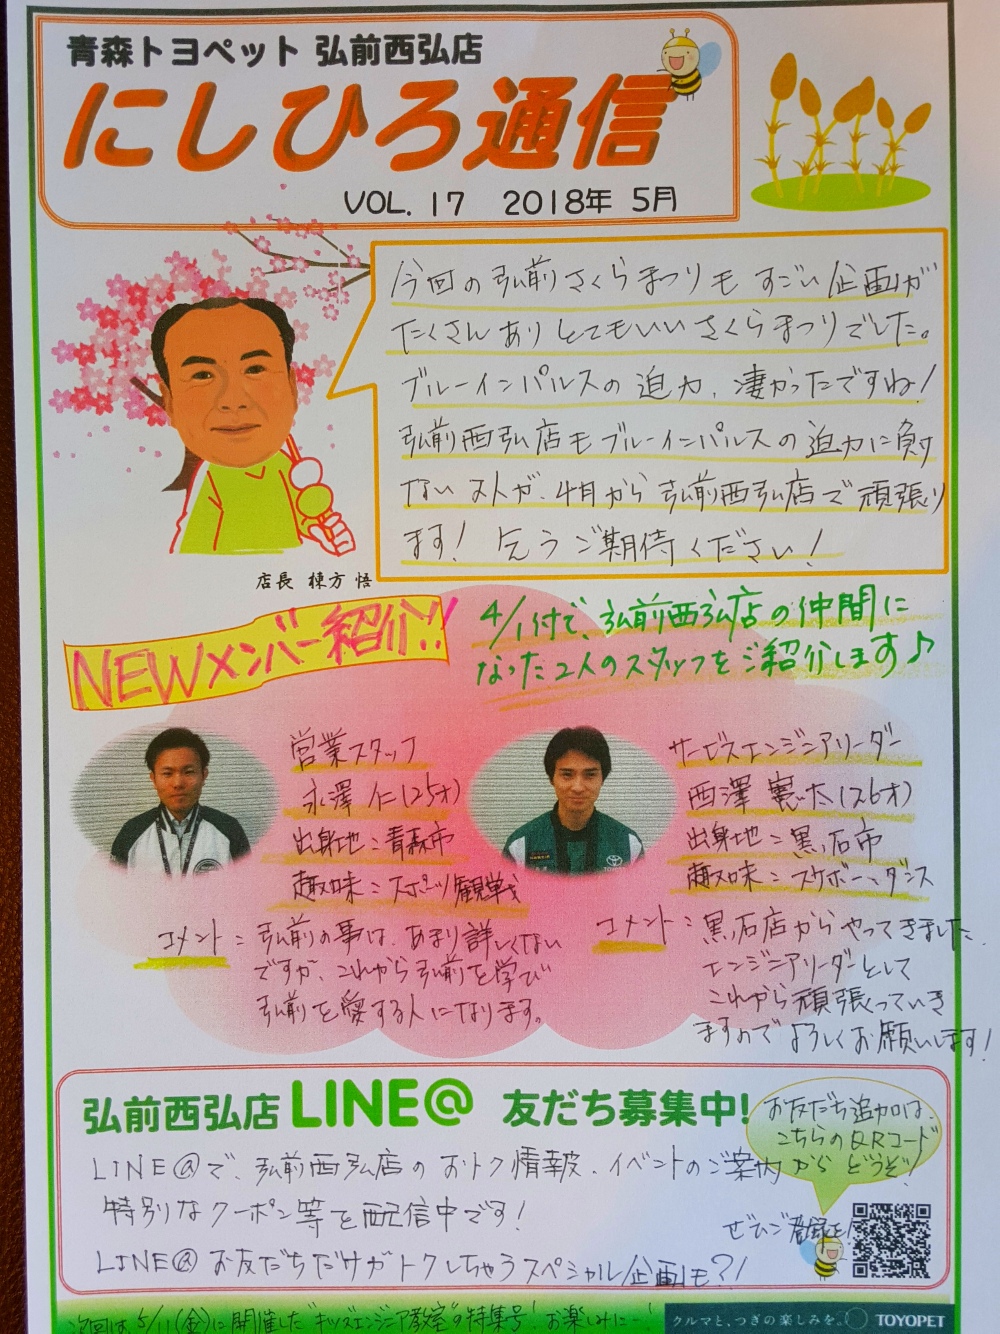 青森トヨペット 弘前西弘店
にしひろ通信
VOL. 17 2018年 5月
今回の弘前さくらまつりも すごい企画が
たくさんありとてもいいさくらまつりでした。
ブルーインパルスの迫力、凄かったですね!
弘前西弘店もブルーインパルスの迫力に負け
ない2人が、4月から弘前西弘店で頑張り
ます! 乞うご期待ください!
店長 棟方 悟
NEWメンバー紹介!!
4/1付で、弘前西弘店の仲間に
なった2人のスタッフをご紹介します♪
営業スタッフ
永澤 仁(25才)
出身地:青森市
趣味:スポーツ観戦
コメント:弘前の事は、あまり詳しくない
ですが、これから弘前を学び
弘前を愛する人になります。
サービスエンジニアリーダー
西澤 憲太(26才)
出身地:黒石市
趣味:スノボー、ダンス
コメント:黒石店からやってきました。
エンジニアリーダーとして
これから頑張っていき
ますのでよろしくお願いします!
弘前西弘店 LINE@ 友だち募集中!
お友だち追加は、
こちらのQRコード
からどうぞ!
LINE@で、弘前西弘店のおトク情報、イベントのご案内
特別なクーポン等を配信中です!
ぜひご登録を!
LINE@お友だちだけがトクしちゃうスペシャル企画も?!
次回は、5/11(金)に開催した"キッズエンジニア教室"の特集号!お楽しみに―!
クルマと、つぎの楽しみを。
TOYOPET